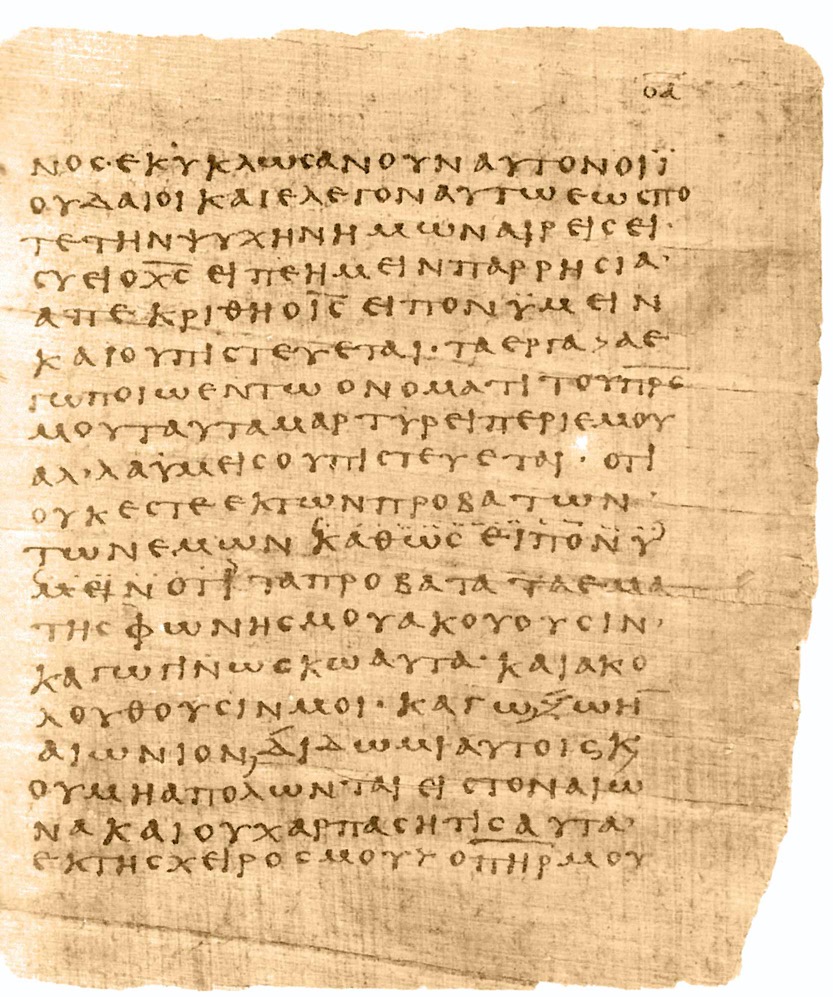 οα
ΝΟϹ·ΕΚΥΚΛωϹΑΝΟΥΝΑΥΤΟΝΟΙΪ
ΟΥΔΑΙΟΙΚΑΙΕΛΕΓΟΝΑΥΤωΕωϹΠΟ
ΤΕΤΗΝΨΥΧΗΝΗΜωΝΑΙΡΕΙϹΕΙ·
ϹΥΕΙΟΧ̅Ϲ̅ΕΙΠΕΗΜΕΙΝΠΑΡΡΗϹΙΑ·
ΑΠΕΚΡΙΘΗΟΙ̅Ϲ̅ΕΙΠΟΝΫΜΕΙΝ
ΚΑΙΟΥΠΙϹΤΕΥΕΤΑΙ·ΤΑΕΡΓΑ>ΑΕ
ΓωΠΟΙωΕΝΤωΟΝΟΜΑΤΙΤΟΥΠ̅Ρ̅Ϲ̅
ΜΟΥΤΑΥΤΑΜΑΡΤΥΡΕΙΠΕΡΙΕΜΟΥ
ΑΛ·ΛΑΫΜΕΙϹΟΥΠΙϹΤΕΥΕΤΑΙ·ΟΤΙ
ΟΥΚΕϹΤΕΕΚΤωΝΠΡΟΒΑΤωΝ
ΤωΝΕΜωΝΚΑΘωϹΕΙΠΟΝΫ
ΜΕΙΝΟΤΙΤΑΠΡΟΒΑΤΑΤΑΕΜΑ
ΤΗϹΦωΝΗϹΜΟΥΑΚΟΥΟΥϹΙΝ·
ΚΑΓωΓΙΝωϹΚωΑΥΤΑ·ΚΑΙΑΚΟ
ΛΟΥΘΟΥϹΙΝΜΟΙ·ΚΑΓωΖωΗ̅
ΑΙωΝΙΟΝ,ΔΙΔωΜΙΑΥΤΟΙϹΚ,
ΟΥΜΗΑΠΟΛωΝΤΑΙΕΙϹΤΟΝΑΙω
ΝΑΚΑΙΟΥΧΑΡΠΑϹΗΤΙϹΑΥΤΑ·
ΕΚΤΗϹΧΕΙΡΟϹΜΟΥΟΠ̅Η̅Ρ̅ΜΟΥ